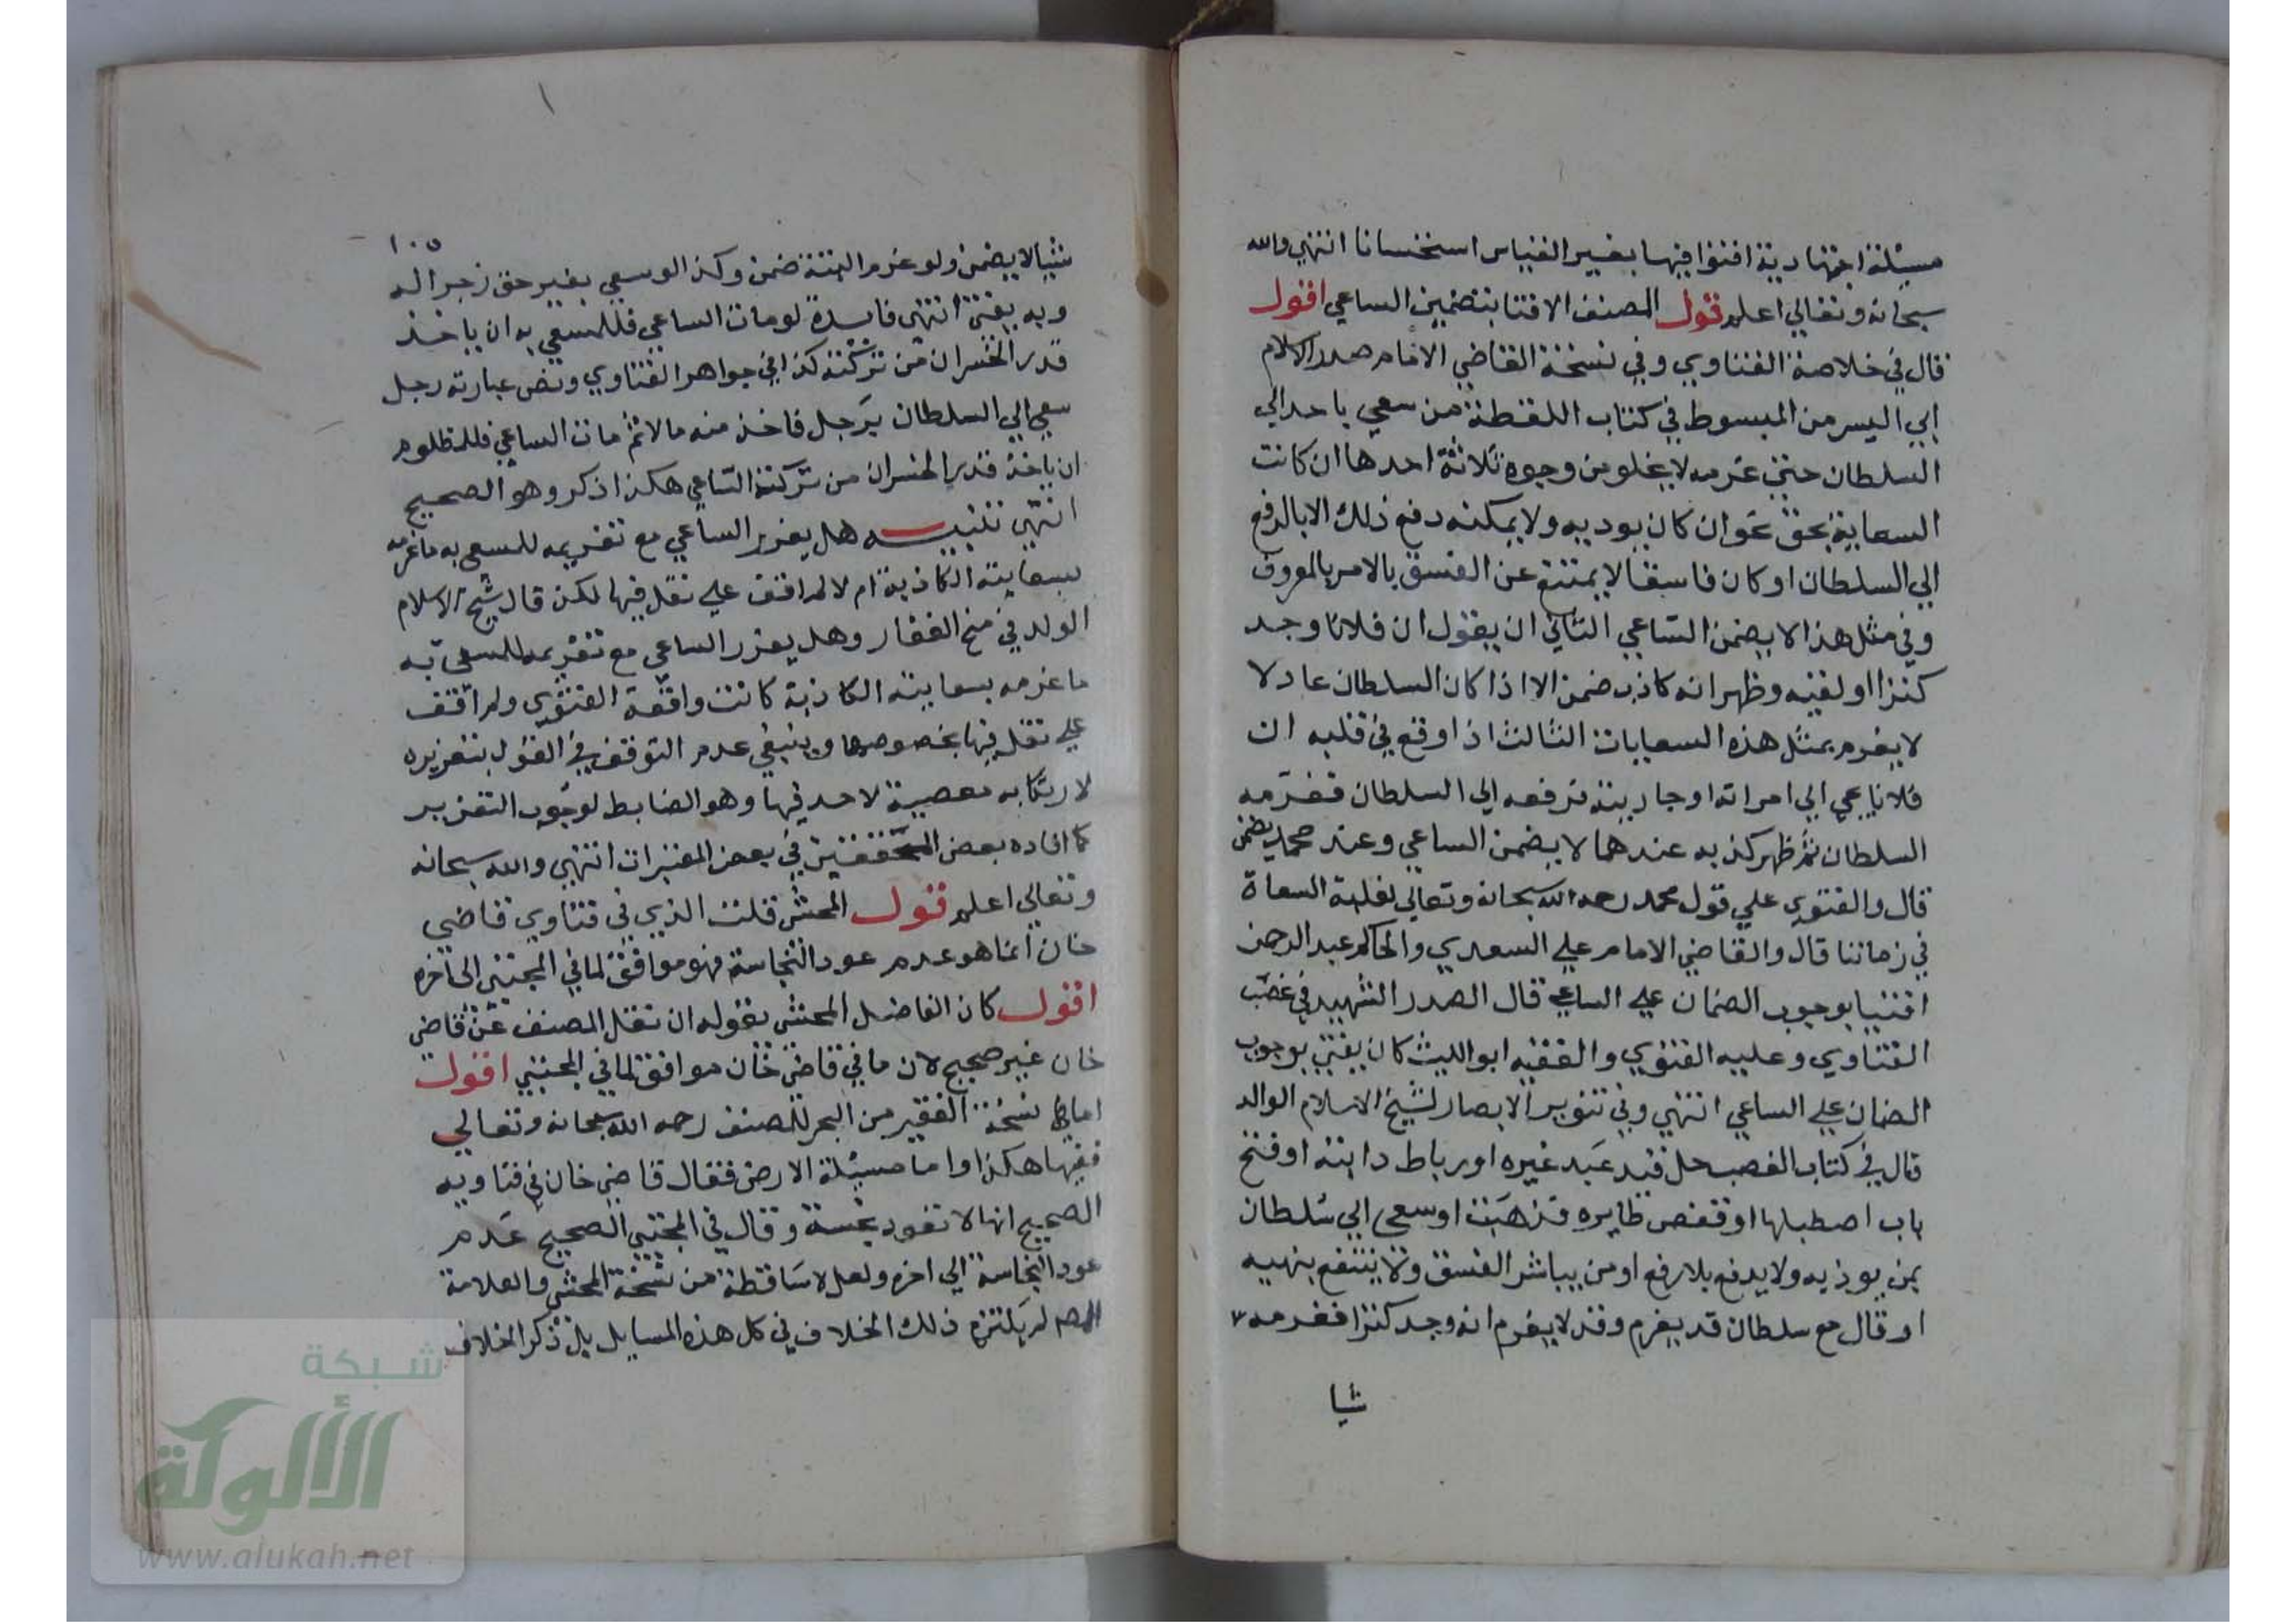 مسئلة اجتهادية افتوا فيها بغير القياس استحسانا انتهي والله
سبحانه وتعالي اعلم قول المصنف الافتا بتضمين الساعي اقول
قال في خلاصة الفتاوي وفي نسخة القاضي الامام صدر الاسلام
ابي اليسر من المبسوط في كتاب اللقطة من سعي باحد الي
السلطان حتي غرمه لا يخلو من وجوه ثلاثة احدها ان كانت
السعاية بحق نحو ان كان يوديه ولا يمكنه دفع ذلك الا بالرفع
الي السلطان او كان فاسقا لا يمتنع عن الفسق بالامر بالمعروف
وفي مثل هذا لا يضمن الساعي الثاني ان يقول ان فلانا وجد
كنزا او لقيه وظهر انه كاذب ضمن الا اذا كان السلطان عادلا
لا يغرم بمثل هذه السعايات الثالث اذا وقع في قلبه ان
فلانا يجي الي امراته او جاريته فرفعه الي السلطان فغرمه
السلطان ثم ظهر كذبه عندهما لا يضمن الساعي وعند محمد يضمن
قال والفتوي علي قول محمد رحمه الله سبحانه وتعالي لغلبة السعاة
في زماننا قال والقاضي الامام علي السعدي والحاكم عبد الرحمن
افتيا بوجوب الضمان علي الساعي قال الصدر الشهيد في غصب
الفتاوي وعليه الفتوي والفقيه ابو الليث كان يفتي بوجوب
الضمان علي الساعي انتهي وفي تنوير الابصار لشيخ الاسلام الوالد
قال في كتاب الغصب حل قيد عبد غيره او رباط دابته او فتح
باب اصطبلها او قفص طايره فذهبت او سعي الي سلطان
بمن يوذيه ولا يدفع بلا رفع او من يباشر الفسق ولا ينتفع بنهيه
او قال مع سلطان قد يغرم وقد لا يغرم انه وجد كنزا فغرمه
شيا
١٠٥
شيا لا يضمن ولو غرم البتة ضمن وكذا لو سعي بغير حق زجرا له
وبه يفتي انتهي فايدة لو مات الساعي فللمسعي به ان ياخذ
قدر الخسران من تركته كذا في جواهر الفتاوي ونص عبارته رجل
سعي الي السلطان برجل فاخذ منه مالا ثم مات الساعي فللمظلوم
ان ياخذ قدر الخسران من تركة الساعي هكذا ذكر وهو الصحيح
انتهي تنبيه هل يعزر الساعي مع تغريمه للمسعي به ما غرمه
بسعايته الكاذبة ام لا لم اقف علي نقل فيها لكن قال شيخ الاسلام
الوالد في منح الغفار وهل يعزر الساعي مع تغريمه للمسعي به
ما غرمه بسعايته الكاذبة كانت واقعة الفتوي ولم اقف
علي نقل فيها بخصوصها وينبغي عدم التوقف في القول بتعزيره
لارتكابه معصية لا حد فيها وهو الضابط لوجوب التعزير
كما افاده بعض المحققين في بعض المعتبرات انتهي والله سبحانه
وتعالي اعلم قول المحشي قلت الذي في فتاوي قاضي
خان انما هو عدم عود النجاسة فهو موافق لما في المجتبي الي اخره
اقول كان الفاضل المحشي يقول ان نقل المصنف عن قاضي
خان غير صحيح لان ما في قاضي خان موافق لما في المجتبي اقول
اما نسخة الفقير من البحر للمصنف رحمه الله سبحانه وتعالي
ففيها هكذا واما مسئلة الارض فقال قاضي خان في فتاويه
الصحيح انها لا تعود نجسة وقال في المجتبي الصحيح عدم
عود النجاسة الي اخره ولعل لا ساقطة من نسخة المحشي والعلامة
المصـ لم يلتزم ذلك الخلاف في كل هذه المسايل بل ذكر الخلاف
شبكة
الألوكة
www.alukah.net